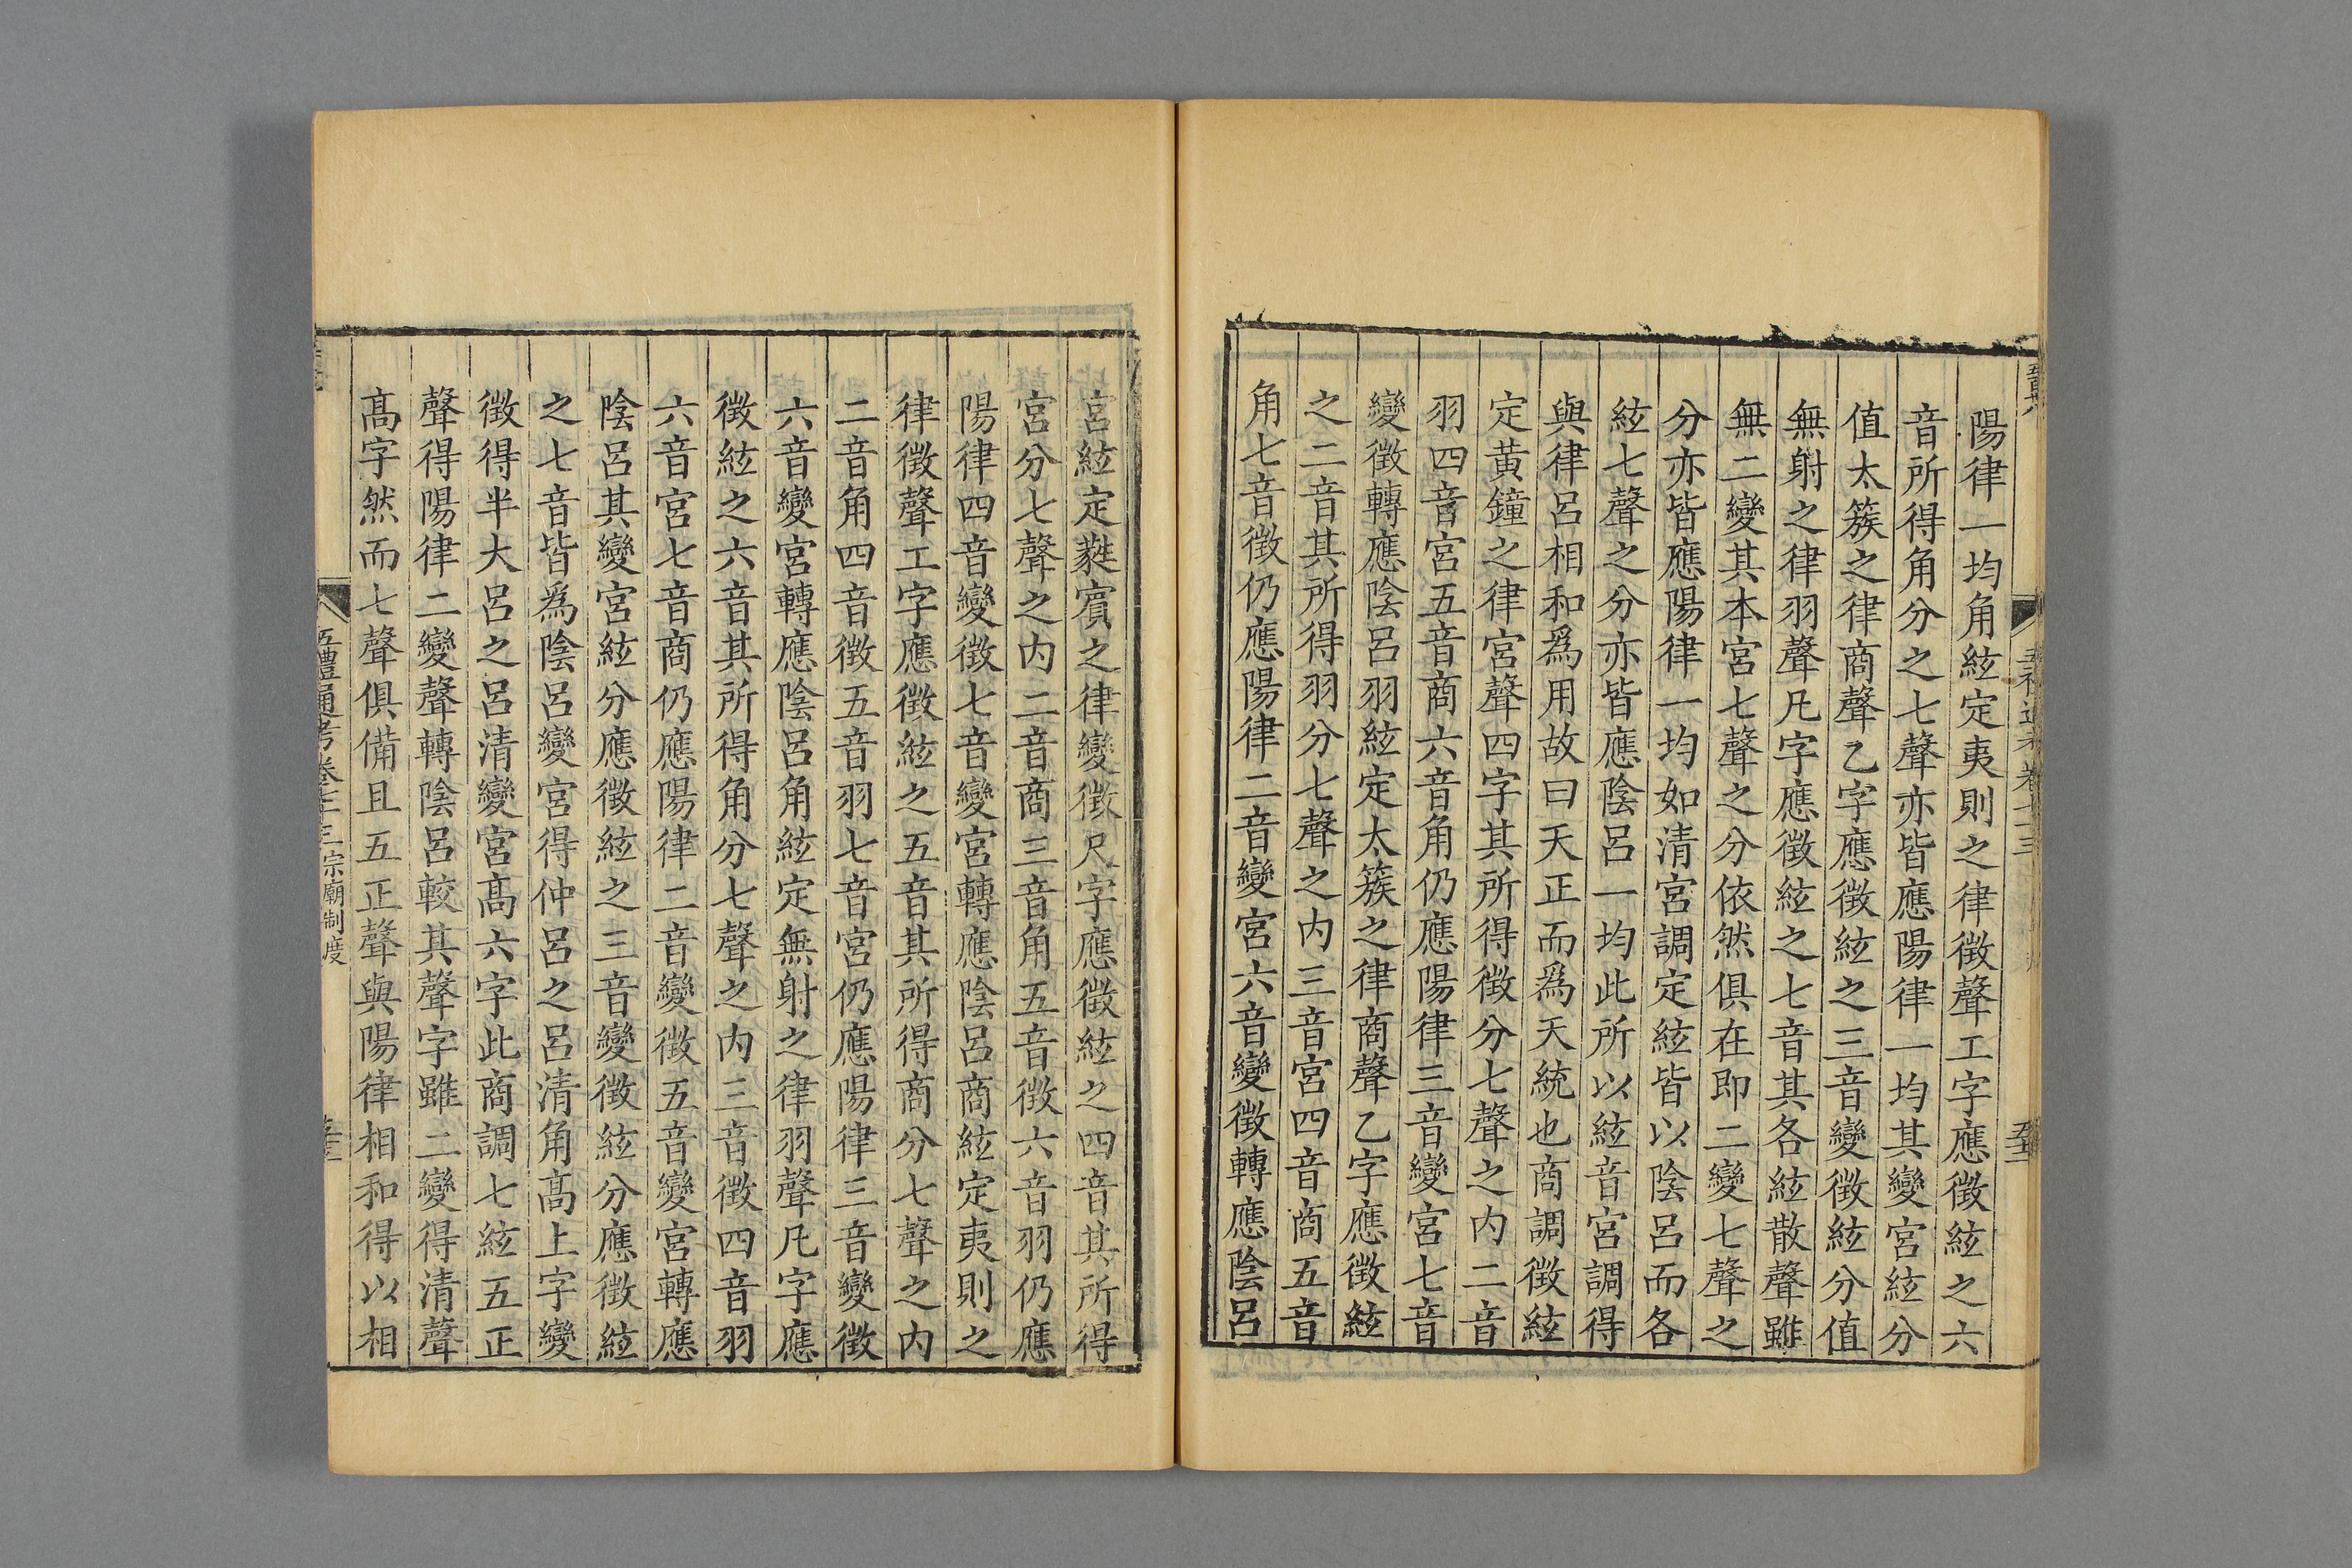 陽律一均角絃定夷則之律徵聲工字應徵絃之六
音所得角分之七聲亦皆應陽律一均其變宮絃分
值太簇之律商聲乙字應徵絃之三音變徵絃分值
無射之律羽聲凡字應徵絃之七音其各絃散聲雖
無二變其本宮七聲之分依然俱在即二變七聲之
分亦皆應陽律一均如清宮調定絃皆以陰呂而各
絃七聲之分亦皆應陰呂一均此所以絃音宮調得
與律呂相和爲用故曰天正而爲天統也商調徵絃
定黃鐘之律宮聲四字其所得徵分七聲之内二音
羽四音宮五音商六音角仍應陽律三音變宮七音
變徵轉應陰呂羽絃定太簇之律商聲乙字應徵絃
之二音其所得羽分七聲之内三音宮四音商五音
角七音徵仍應陽律二音變宮六音變徵轉應陰呂
宮絃定蕤賓之律變徵尺字應徵絃之四音其所得
宮分七聲之内二音商三音角五音徵六音羽仍應
陽律四音變徵七音變宮轉應陰呂商絃定夷則之
律徵聲工字應徵絃之五音其所得商分七聲之内
二音角四音徵五音羽七音宮仍應陽律三音變徵
六音變宮轉應陰呂角絃定無射之律羽聲凡字應
徵絃之六音其所得角分七聲之内三音徵四音羽
六音宮七音商仍應陽律二音變徵五音變宮轉應
陰呂其變宮絃分應徵絃之三音變徵絃分應徵絃
之七音皆爲陰呂變宮得仲呂之呂清角高上字變
徵得半大呂之呂清變宮高六字此商調七絃五正
聲得陽律二變聲轉陰呂較其聲字雖二變得清聲
高字然而七聲俱備且五正聲與陽律相和得以相
五禮通考卷七十三宗廟制度